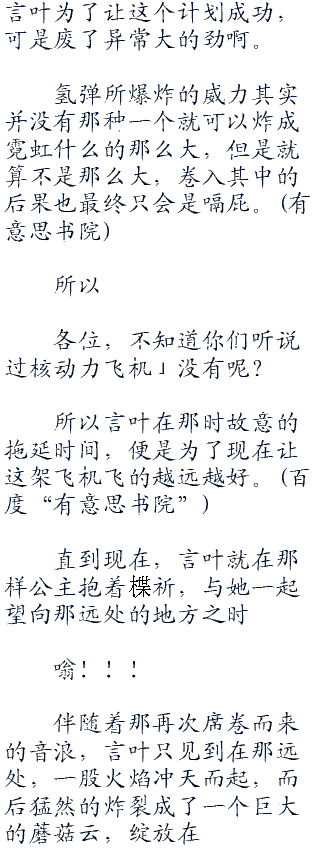 言叶为了让这个计划成功，
可是废了异常大的劲啊。
氢弹所爆炸的威力其实
并没有那种一个就可以炸成
霓虹什么的那么大，但是就
算不是那么大，卷入其中的
后果也最终只会是嗝屁。(有
意思书院)
所以
各位，不知道你们听说
过核动力飞机」没有呢？
所以言叶在那时故意的
拖延时间，便是为了现在让
这架飞机飞的越远越好。(百
度“有意思书院”)
直到现在，言叶就在那
样公主抱着楪祈，与她一起
望向那远处的地方之时
嗡！！！
伴随着那再次席卷而来
的音浪，言叶只见到在那远
处，一股火焰冲天而起，而
后猛然的炸裂成了一个巨大
的蘑菇云，绽放在